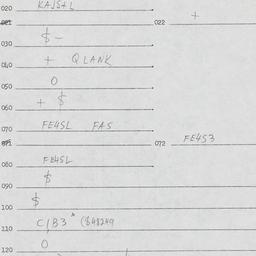 020 KAJSTL
021 022 +
$ -
030
+ QLANK
040
0
050
+ $
060
070 FE4SL FAS
071 072 FE4S3
080 FE4SL
$
090
$
100
C/B3 * ($48249
110
0
120